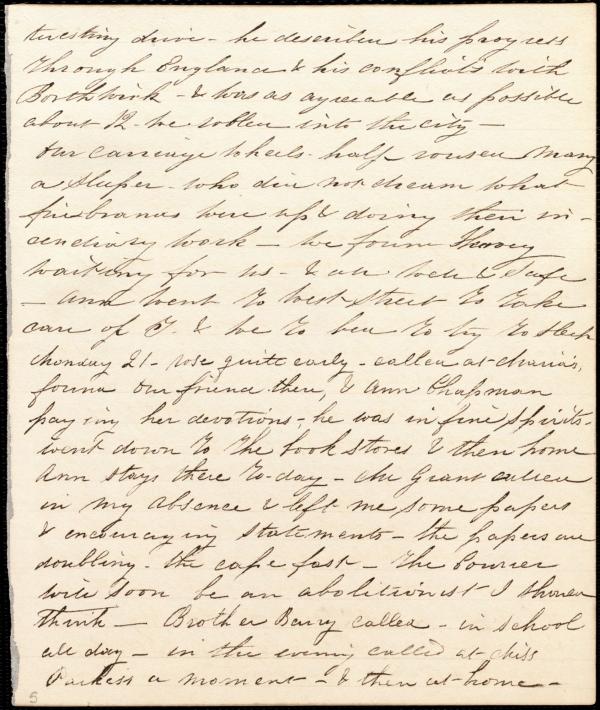 teresting drive - he described his progress
through England & his conflicts with
Borthwick - & was as agreeable as possible
about 12 - we rolled into the city -
Our carriage wheels - half roused many
a sleeper - who did not dream what
fire brands were up & doing their in-
cendiary work - we found Henry
waiting for us - & all well & safe
- Ann went to West Street to take
care of T. & we to bed to try to sleep
Monday 21 - rose quite early - called at Maria's,
found our friend there, & Ann Chapman
paying her devotions - he was in fine spirits -
went down to the book stores & then home
Ann stays there to-day - Mr Grant called
in my absence & left me some papers
& encouraging statements - the papers are
doubling the cape fast - the Courier
will soon be an abolitionist I should
think - Brother Benny called - in school
all day - in the evening called at Miss
Parker's a moment - & then at home -
5